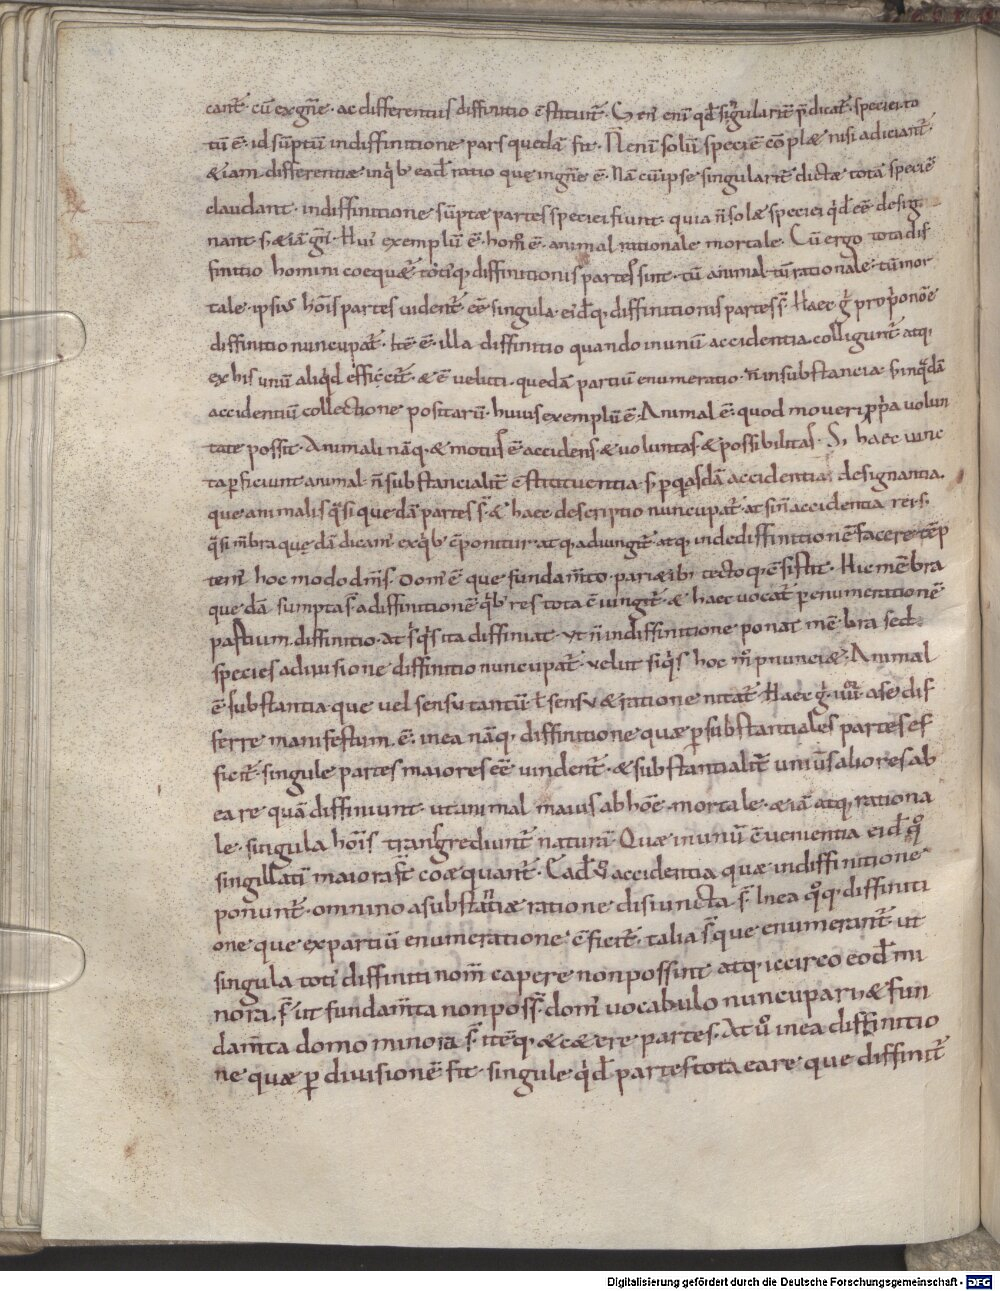 cant̄. cū ex gn̄e. ac differentiis diffinitio c̄stituit̄. Gen᷒ eni᷒ qd̄ singularit̄ p̄dicat̄. speciei to
tū ē. id sūptū in diffinitione pars quedā fit. N̄ eni᷒ solū speciē cōplæ nisi adiciant̄
& iam differentiæ in qͥb eadē ratio que in gn̄e ē. Nā cū ipse singularit̄ dictæ totā speciē
claudant. in diffinitione sūptæ partes speciei fiunt. quia n̄ solæ speciei qͥd ēē desig
nant. s; & iā gn̄i. Hui᷒ exemplū ē. homo ē. animal rationale mortale. Cū ergo tota dif
finitio homini coequet̄. tociᷤq; diffinitionis partes sint. tū animal. tū rationale. tū mor
tale. ipsius hoīs partes uident̄ ēē singula. eidēq; diffinitionis partes s̄. Haec g̊ pro p̄ponōe
diffinitio nuncupat̄. Itē ē illa diffinitio quando in unū accidentia colligunt̄. atq;
ex his unū aliqͥd efficit̄. & ē veluti quedā partiū enumeratio. n̄ in substancia s; in qͣdā
accidentiū collectione positarū. huius exemplū ē. Animal ē. quod moueri p̄pria uolun
tate possit. Animali nāq; & motus ē accidens. & uoluntas. & possibilitas. S; haec iunc
ta p̄ficiunt animal. n̄ substancialit̄ c̄stituentia. s; p quasdā accidentia designantia.
que animalis qͣsi que dā partes s̄. & haec descriptio nuncupat̄. at si n̄ accidentia rei s;
qͣsi mēbra que dā dicam᷒. ex qͥb c̄ponitur atq; adiungit̄. atq; inde diffinitionē facere tēp
tem᷒. hoc modo dicim᷒s. Dom᷒ ē que fundam̄to. pariæib; tectoq; c̄sistit. Hic mēbra
que dā sumpta s̄ ad diffinitionē. qͥb; res tota c̄iungit̄. & haec vocat̄ p enumerationē
partium diffinitio. at si qͥs ita diffiniat. ut n̄ in diffinitione ponat mēbra sed
species a diuisione diffinitio nuncupat̄. velut si qͥs hoc m̊ p̄nunciæ. Animal
ē substantia que vel sensu tantū. ł sensu & ratione nitat̄. Haec g̊. iiii᷒or a se dif
ferre manifestum ē. in ea nāq; diffinitione quæ p substantiales partes ef
ficit̄. singule partes maiores ēē uindent̄. & substantialit̄ uniuersaliores ab
ea re quā diffiniunt. ut animal maius ab hoīe. mortale. & iā atq; rationa
le. singula hoīs transgrediunt̄ naturā. Quæ in unū c̄uenientia eidē qͦ
singillatī maiora s̄t coæquant̄. Ead̄ uͦ accidentia quæ in diffinitione
ponunt̄. omnino a substantiæ ratione disiuncta s̄. In ea qͦq; diffiniti
one que ex partiū enumeratione c̄ficit̄. talia s̄ que enumerant̄. ut
singula toti᷒ diffiniti nom̄ capere non possint. atq; iccirco eodē mi
nora s̄. ut fundam̄ta non poss̄ dom᷒ uocabulo nuncupari. & fun
dam̄ta domo minora s̄. itēq; & cæere partes. At uͦ in ea diffinitio
ne quæ p diuisionē fit. singule qͥdē partes tota ea re que diffinit̄
Digitalisierung gefördert durch die Deutsche Forschungsgemeinschaft - DFG